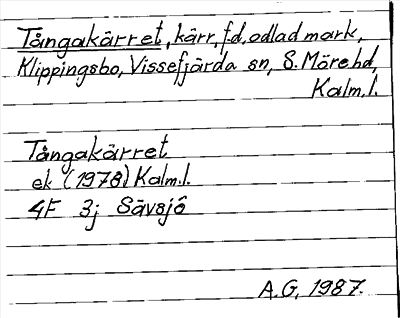 Tångakärret, kärr, f.d. odlad mark,
Klippingsbo, Vissefjärda sn, S. Möre hd,
Kalm.l.
Tångakärret
ek (1978) Kalm.l.
4F 3j Sävsjö
A.G, 1987.